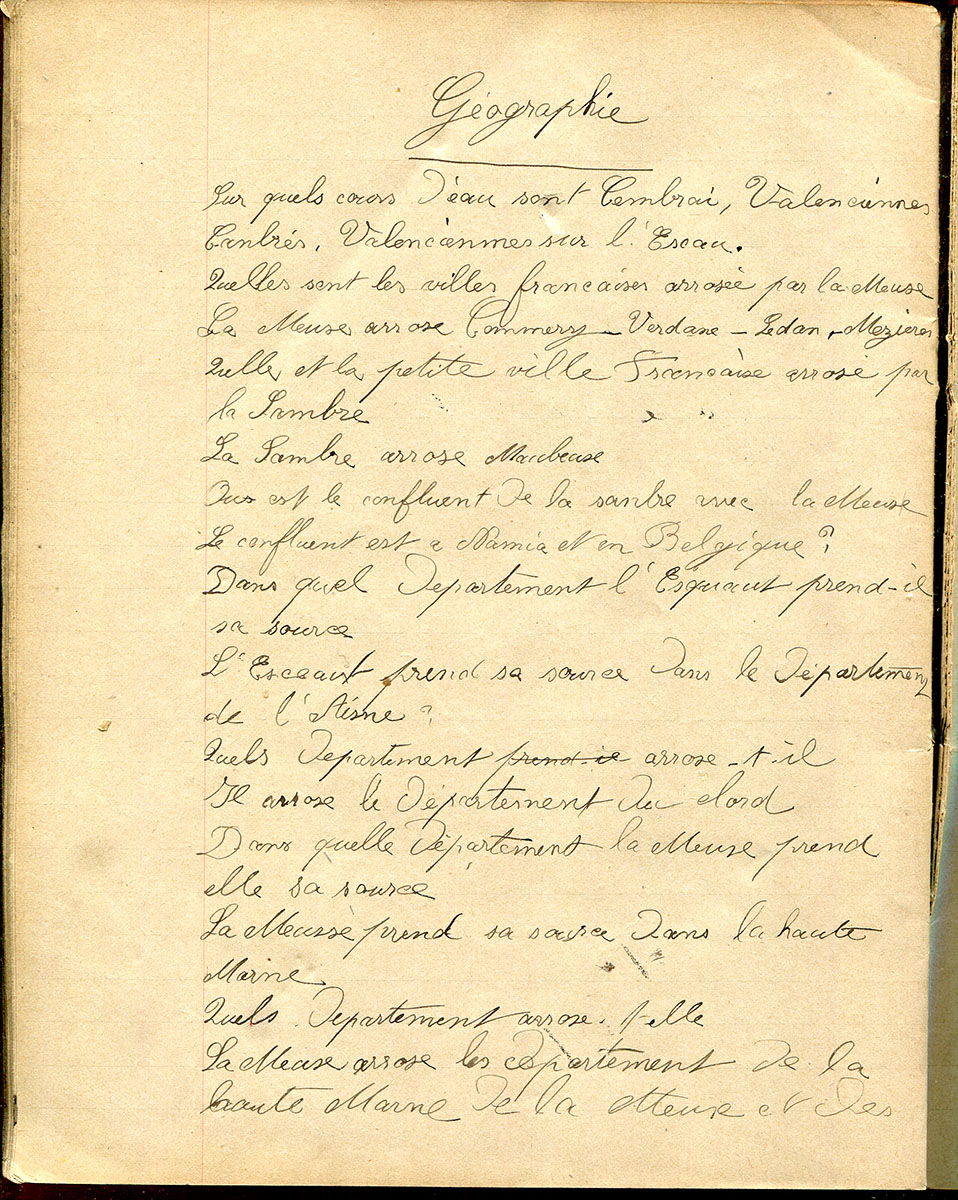 Géographie
Sur quels cours d'éau sont Cembrai, Valenciennes
Canbrés, Valenciènmes sur l'Escau.
Quelles sont les villes francaises arrosée par la Meuse
La Meuse arrose Commerry - Verdane - Sedan, Mezières
Quelle et la petite ville Francaise arrosé par
la Sambre
La Sambre arrose Maubeuse
Ous est le confluent de la sanbre avec la Meuse
Le confluent est a Namia et en Belgique ?
Dans quel Departement l'Esquaut prend-il
sa source
L'Escaut prend sa source dans le Département
de l'Aisne ?
Quels Departement prend-il arrose-t-il
Il arrose le Département du Nord
Dans quelle Département la Meuse prend
elle sa source
La Meusse prend sa source dans la haute
Marne
Quels Departement arrose-t-elle
La Meuse arrose les département de la
haute Marne de la Meuse et des